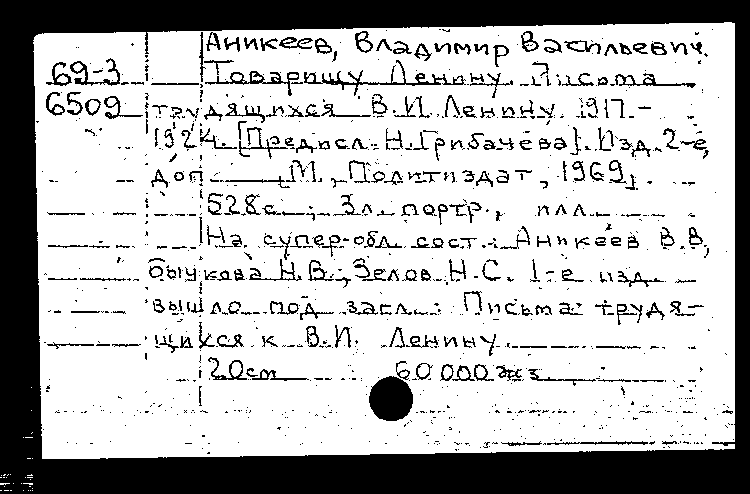 Аникеев, Владимир Васильевич.
69-3 Товарищу Ленину. Письма
6509 трудящихся В.И. Ленину. 1917.-
1924. [Предисл. Н. Грибачева]. Изд. 2-е,
доп. М., Политиздат, 1969,
528 с. ; 3 л. портр., илл.
На супер-обл. сост.: Аникеев В.В,
бычкова Н.В., Зелов Н.С. 1-е изд.
вышло под загл.: Письма трудя-
щихся к В.И. Ленину.
20см 60 000 экз